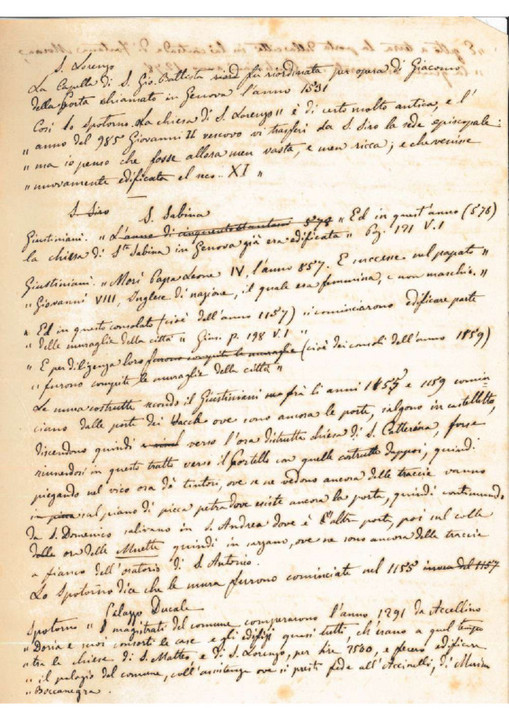 S. Lorenzo
La Capella di S. Gio. Battista venne fu riordinata per opera di Giacomo
della Porta chiamato in Genova l'anno 1531
Così lo Spotorno "La chiesa di S. Lorenzo" è di certo molto antica, e l'
" anno del 985 Giovanni II vescovo vi trasferì da S. Siro la sede episcopale:
" ma io penso che fosse allora men vasta, e men ricca; e che venisse
" nuovamente edificata nel sec. XI "
S. Siro S. Sabina
Giustiniani. " L'anno di cinquecento 574 " Ed in quest'anno (578)
la chiesa di Sta Sabina in Genova già era edificata " Pag. 121 V. 1
Giustiniani. " Morì Papa Leone IV, l'anno 857. E successe nel papato "
" Giovanni VIII, Inglese di nazione, il quale era femmina, e non maschio. "
" Ed in questo consolato (cioè dell'anno 1157) si cominciarono edificare parte
" delle muraglie della città " Gius. p. 198 V. 1 "
" E per diligenza loro furono compite le muraglie (cioè dei consoli dell'anno 1159)
" furono compite le muraglie della città "
Le mura costrutte secondo il Giustiniani fra li anni 1155 e 1159 comin-
ciano dalla porta dei Vacca ove sono ancora le porte, salgono in castelletto,
discendono quindi verso l'ora distrutta chiesa di S. Catterina, forse
riunendosi in questo tratto verso il Portello con quelle costrutte dappoi, quindi
piegando nel vico ora de' tintori, ove se ne vedono ancora delle traccie vanno
in sul piano di picca pietra dove esiste ancora la porta, quindi continuando
da S. Domenico salivano in S. Andrea dove è l'altra porta, poi sul colle
dalle ora delle Murette quindi in sarzano, ove ne sono ancora delle traccie
a fianco dell'oratorio di S. Antonio.
Lo Spotorno dice che le mura furono cominciate nel 1155
Palazzo Ducale
Spotorno " I magistrati del comune comperarono l'anno 1291 da Accellino
" Doria e suoi consorti le case e gli edifizj quasi tutti, ch'erano a quel tempo
" tra la chiesa di S. Matteo, e di S. Lorenzo, per lire 2500, e fecero edificare
" il palagio del comune, coll'assistenza ove si presti fede all'Accinelli, di Marino
" Boccanegra.